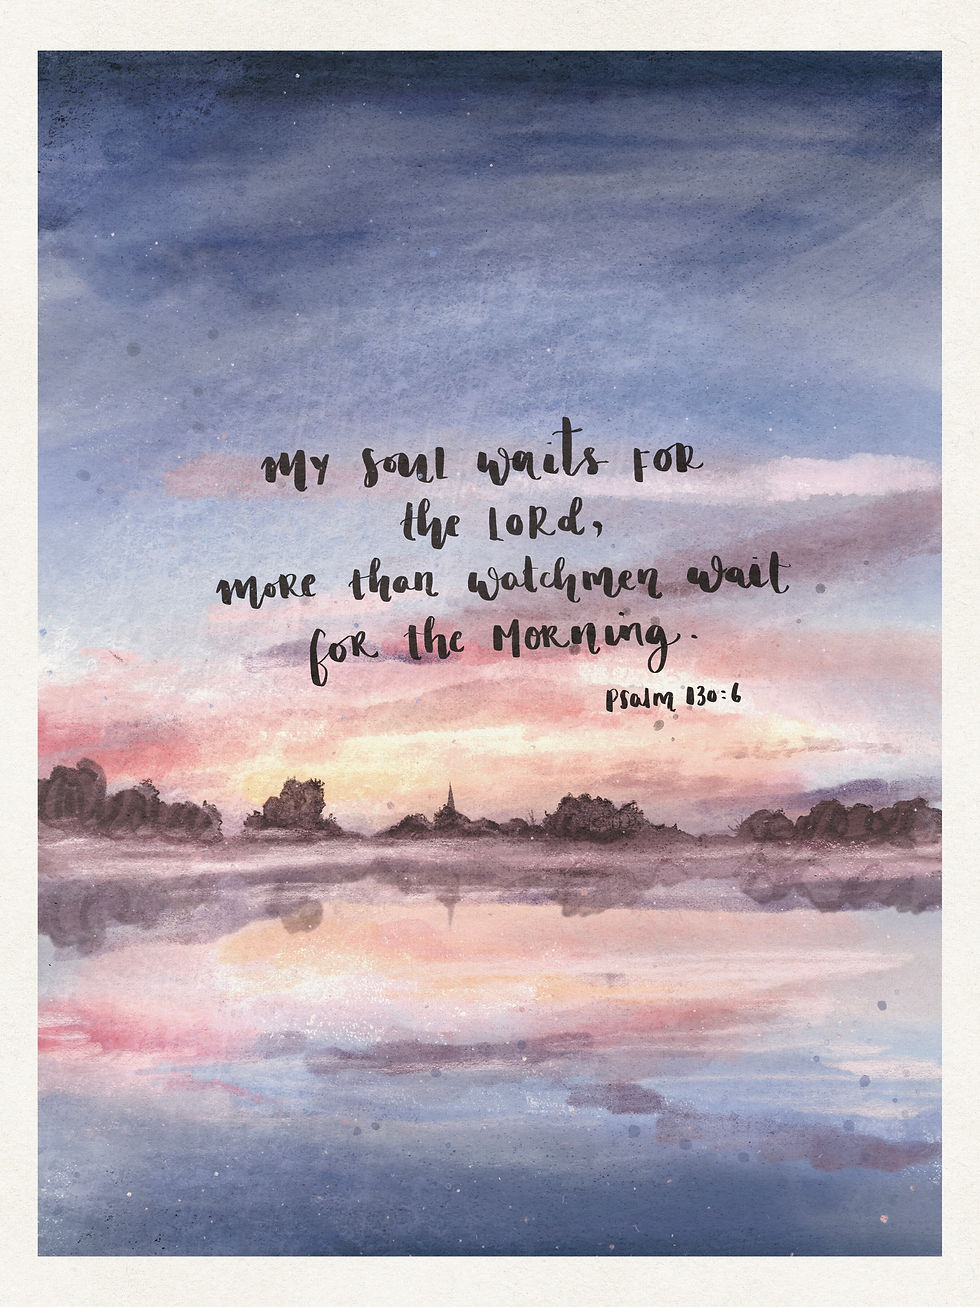 My soul waits for
the Lord,
more than watchmen wait
for the morning.
Psalm 130:6